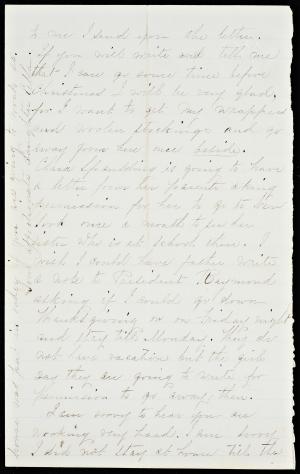 to me I send you the letter.
If you will write and tell me
that I can go some time before
Christmas I will be very glad,
for I want to get my wrapper
and woolen stockings and go
away from here once beside.
Clara Spaulding is going to have
a letter from her parents asking
permission for her to go to New
York once a month to see her
sister who is at school there. I
wish I could have father write
a note to President Raymond
asking if I could go down
Thanksgiving or on Friday night
and stay till Monday. They do
not have vacation but the girls
say they are going to write for
permission to go away then.
I am sorry to hear you are
working very hard. I am sorry
I did not stay at home till the